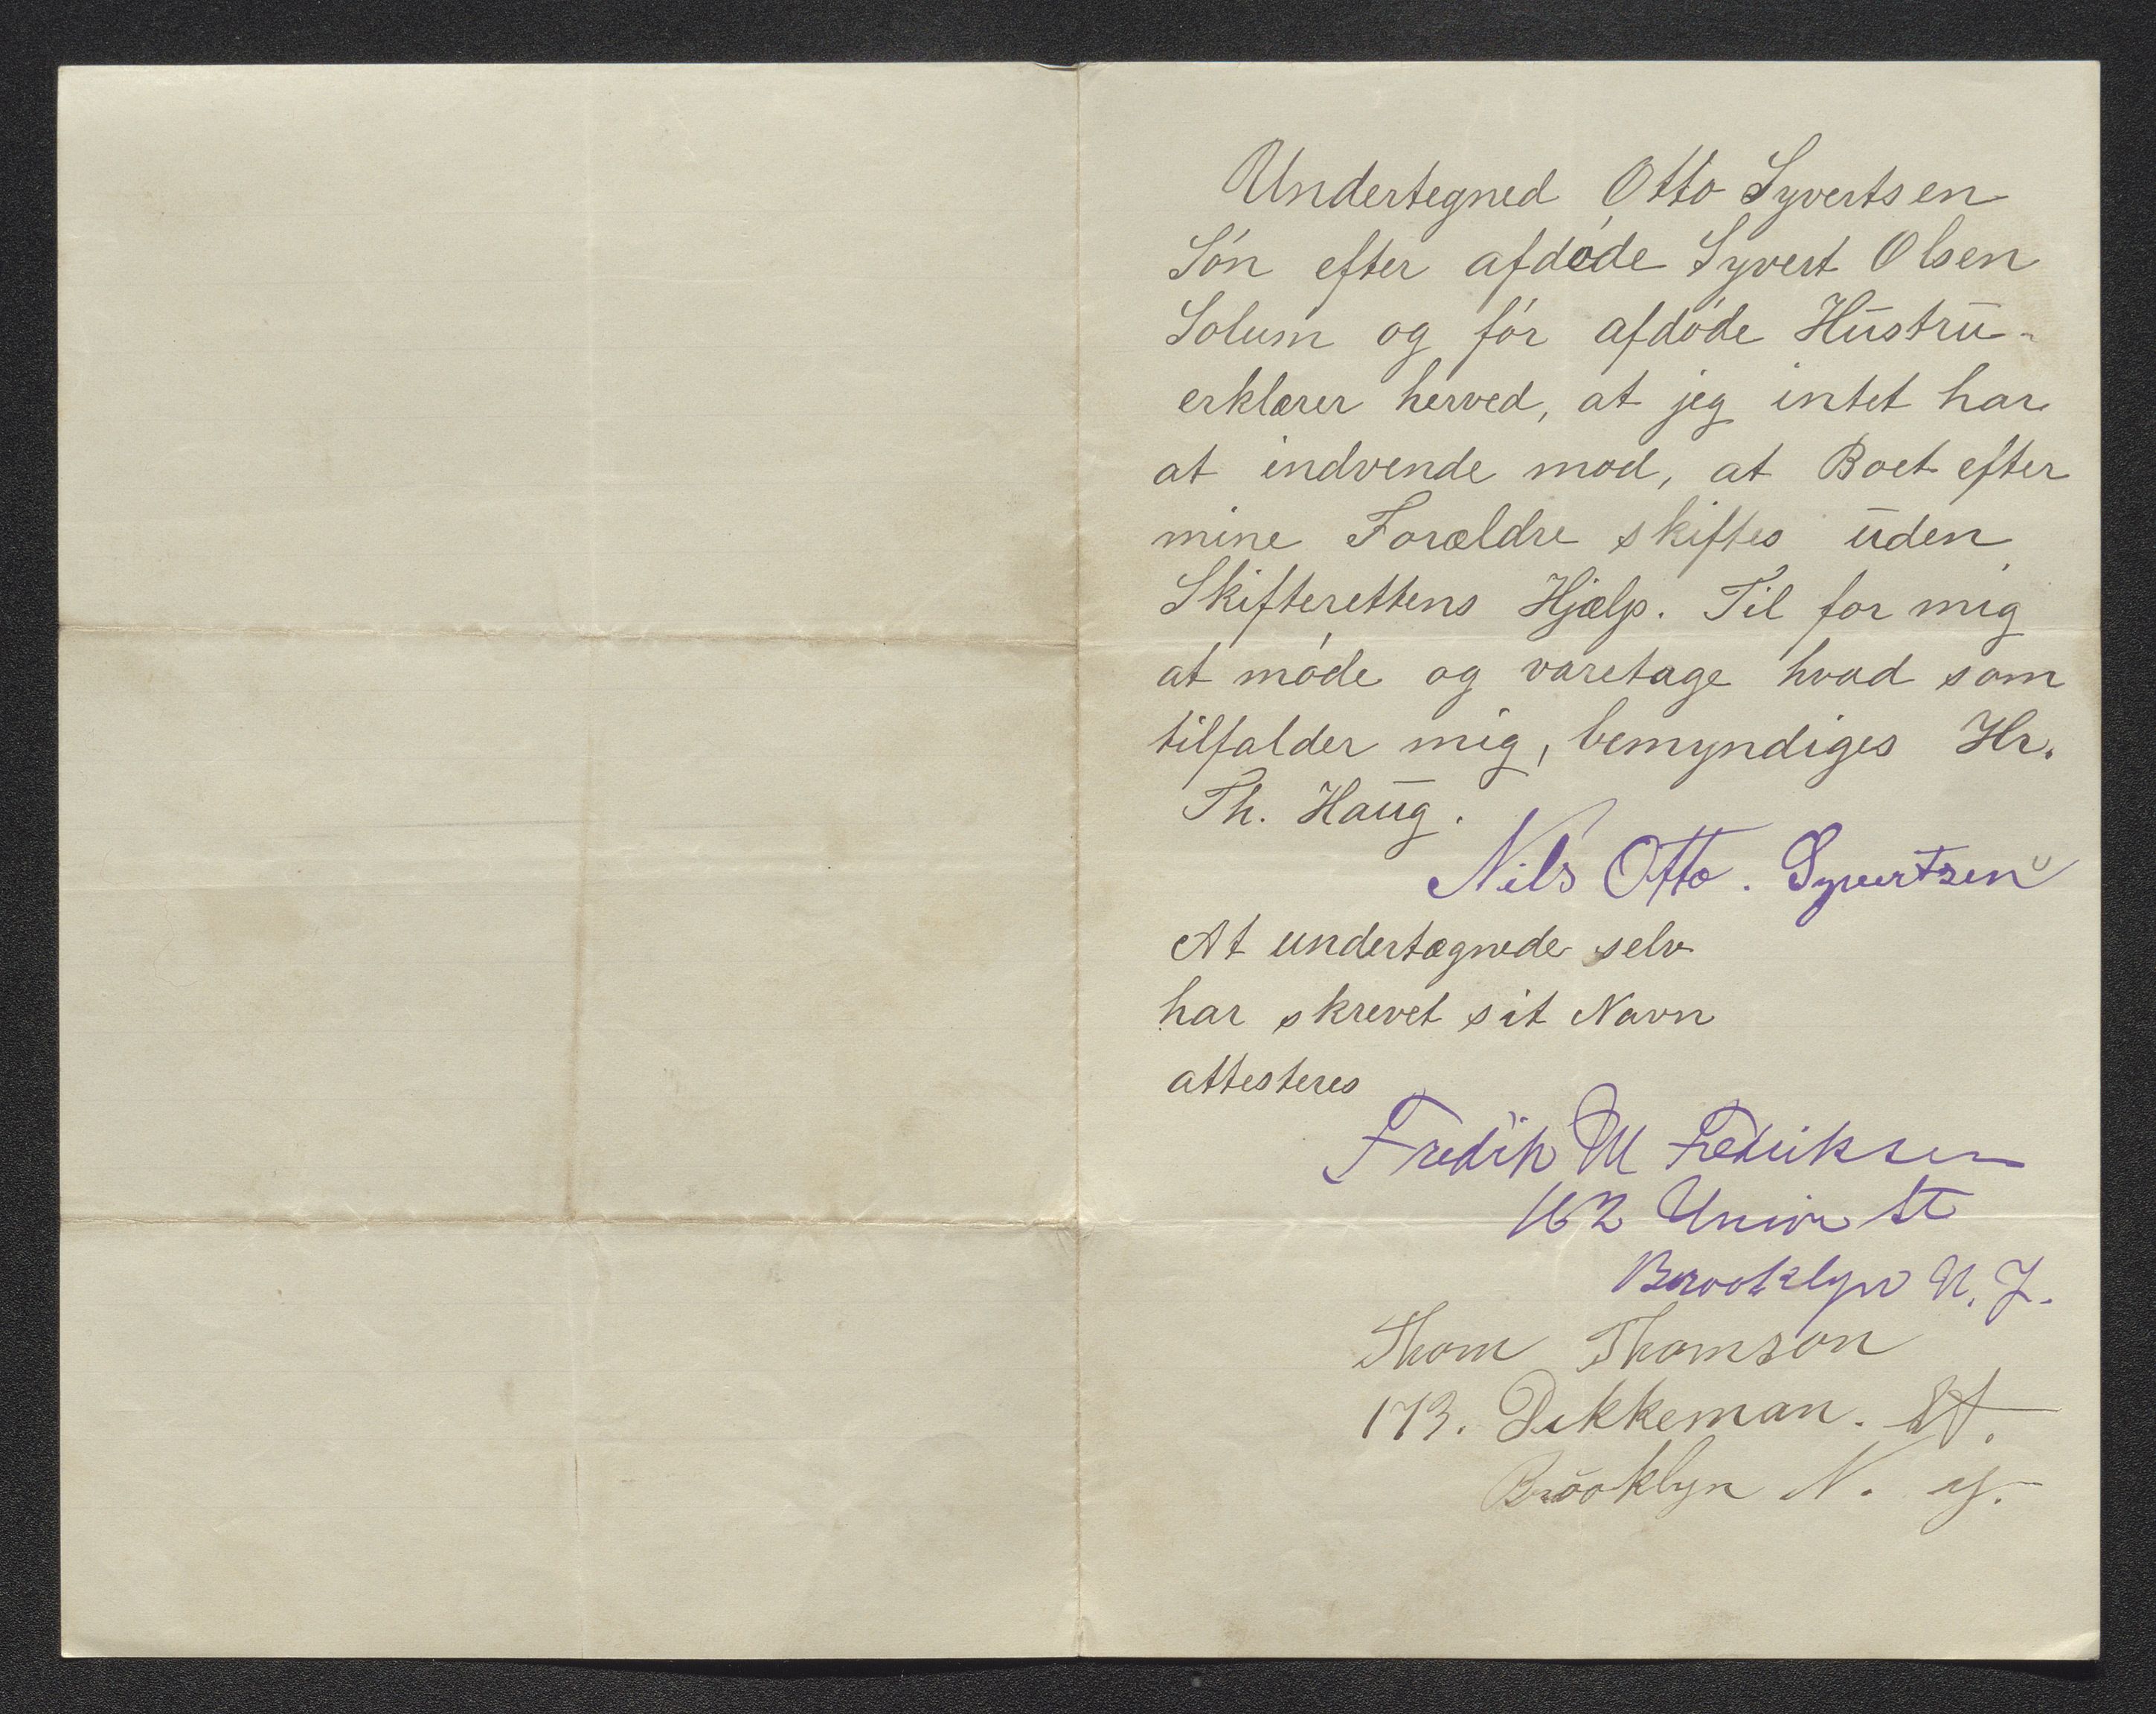 Undertegned Otto Syvertsen
Són efter afdóde Syvert Olsen
Solum og fór afdóde Hustru
erklærer herved, at jeg intet har
at indvende mod, at Boet efter
mine Forældre skiftes uden
Skifterettens Hjælp. Til for mig
at móde og varetage hvad som
tilfalder mig, bemyndiges Hr.
Th. Haug.
Nils Otto. Syvertsen
At undertegnede selv
har skrevet sit Navn
attesteres
Fredik M Fredriksen
162 Union St
Brooklyn N. Y.
Thom Thomson
173. Dikkeman. St.
Brooklyn N. Y.